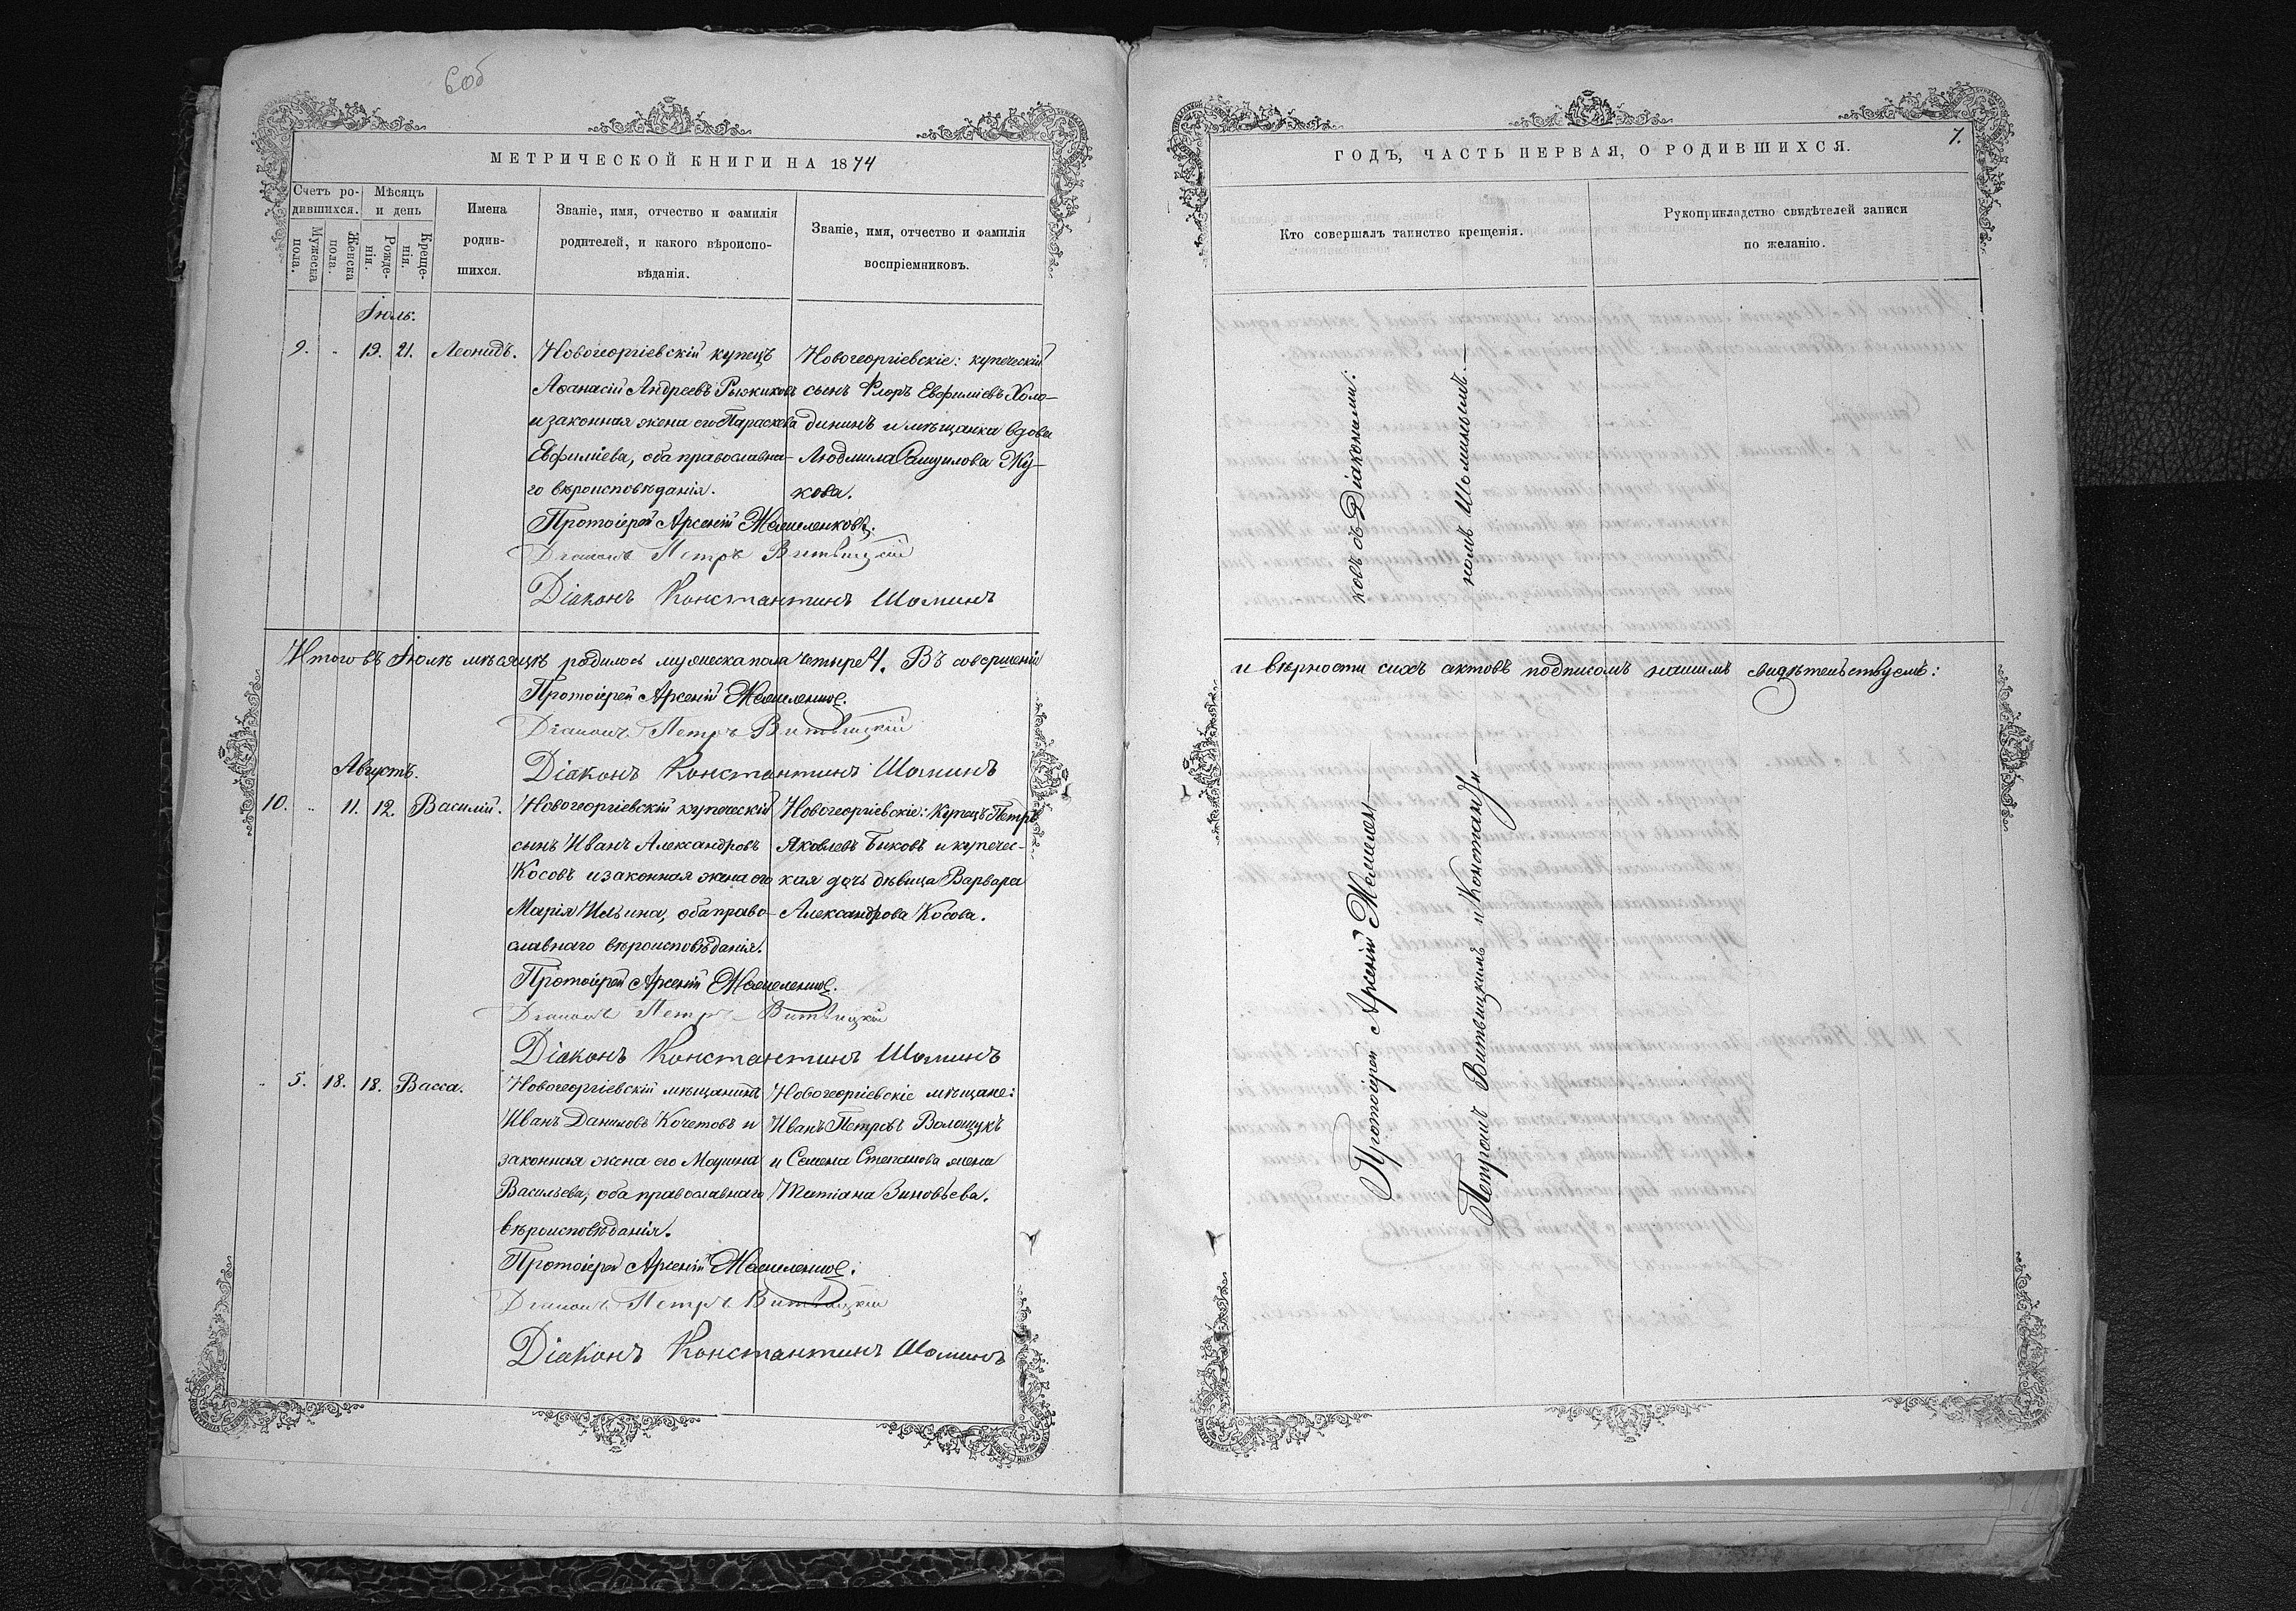 Соб
МЕТРИЧЕСКОЙ КНИГИ НА 1874
Счетъ ро-
дившихся.
Мѣсяцъ
и день
Мужеска
пола.
Женска
пола.
Рожде-
нія.
Креще-
нія.
Имена
родив-
шихся.
Званіе, имя, отчество и фамилія
родителей, и какого вѣроиспо-
вѣданія.
Званіе, имя, отчество и фамилія
воспріемниковъ.
Іюль.
9. 19. 21. Леонидъ.
Новогеоргіевскій купецъ
Аѳанасій Андреевъ Рыжиковъ
и законная жена его Параскева
Евфиміева, оба православна-
го вѣроисповѣданія.
Новогеоргіевскіе: купеческій
сынъ Флоръ Евфиміевъ Холо-
динъ и мѣщанка вдова
Людмила Жу-
кова.
Протоіерей Арсеній
Діаконъ Петръ Витвицкій
Діаконъ Константинъ Шоминъ
Итого въ Іюлѣ мѣсяцѣ родилось мужеска пола четыре 4. Въ совершеніи
Протоіерей Арсеній
Діаконъ Петръ Витвицкій
Діаконъ Константинъ Шоминъ
Августъ.
10. 11. 12. Василій.
Новогеоргіевскій купеческій
сынъ Иванъ Александровъ
Косовъ и законная жена его
Марія Ильина, оба право-
славнаго вѣроисповѣданія.
Новогеоргіевскіе: Купецъ Петръ
Яковлевъ Быковъ и купечес-
кая дочь дѣвица Варвара
Александрова Косова.
Протоіерей Арсеній
Діаконъ Петръ Витвицкій
Діаконъ Константинъ Шоминъ
5. 18. 18. Васса.
Новогеоргіевскій мѣщанинъ
Иванъ Даниловъ Кочетовъ и
законная жена его Марина
Васильева, оба православнаго
вѣроисповѣданія.
Новогеоргіевскіе мѣщане:
Иванъ Петровъ Волощукъ
и Семена Степанова жена
Татіана Зиновьева.
Протоіерей Арсеній
Діаконъ Петръ Витвицкій
Діаконъ Константинъ Шоминъ
7.
ГОДЪ, ЧАСТЬ ПЕРВАЯ, О РОДИВШИХСЯ.
Кто совершалъ таинство крещенія.
Рукоприкладство свидѣтелей записи
по желанію.
и вѣрности сихъ актовъ подписомъ нашимъ свидѣтельствуемъ:
Протоіерей Арсеній Жемелен-
ковъ съ Діаконами:
Петромъ Витвицкимъ и Константи-
номъ Шоминымъ.